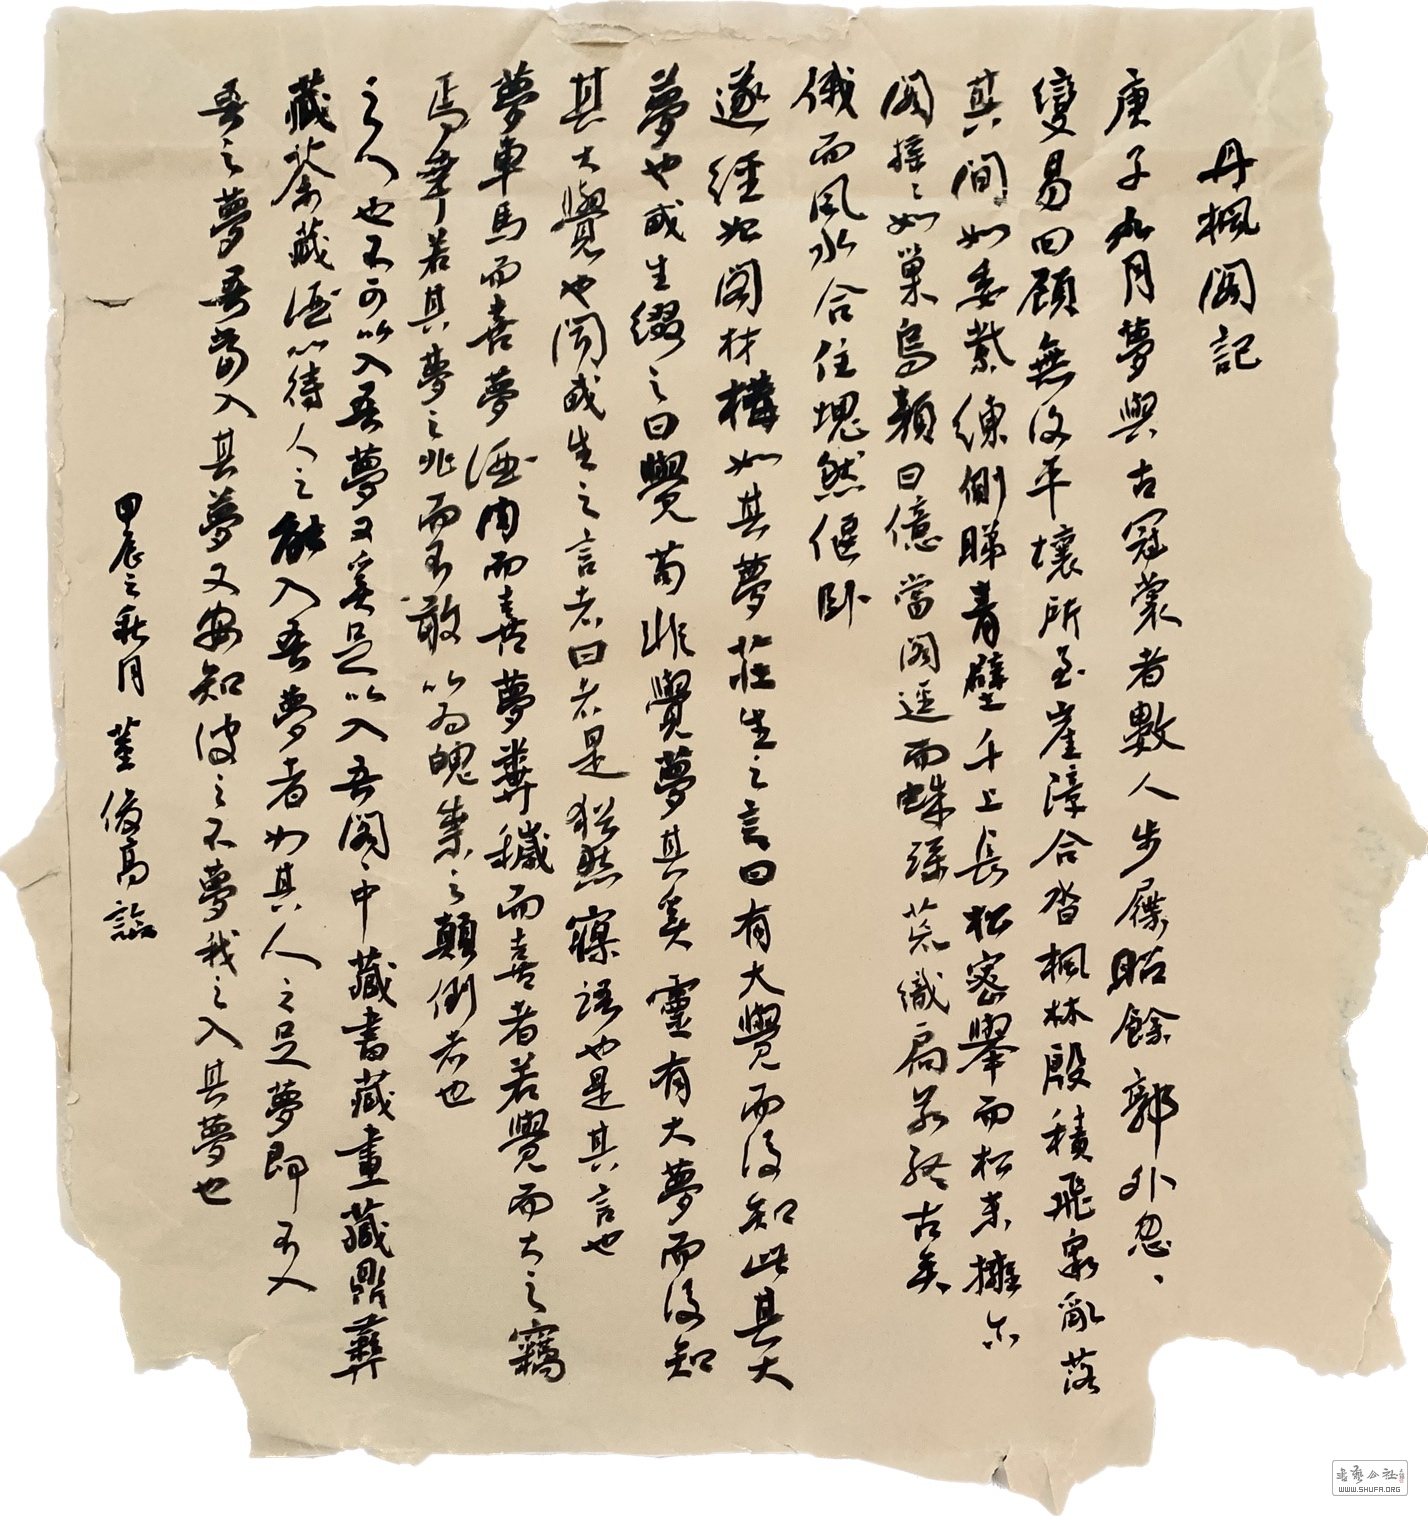 丹楓閣記
庚子九月夢與古冠裳者數人步屧昭餘郭外忽〻
變易回顧無復平壤所至崖障合沓楓林殷積飛泉亂落
其間如委紫練側睇青壁千上長松密舉而松末擁尒
閣搖〻如巢烏顏曰億當閣逕而蛛絲荒織扃若終古矣
俄而風水合住塊然偃卧
遂經始閣材構如其夢莊生之言曰有大覺而後知此其大
夢也或生綴之曰覺苟非覺夢其奚靈有大夢而後知
其大覺也聞或生之言者曰若是猶然寱語也是其言也
夢車馬而喜夢酒肉而喜夢糞穢而喜者若覺而大之竊
焉幸若其夢之非而不敢以為魄業之顛倒者也
之人也不可以入吾夢又奚足以入吾閣〻中藏書藏畫藏鼎彝
藏茶藏酒以待人之能入吾夢者如其人之足夢即可入
吾之夢吾當入其夢又安知彼之不夢我之入其夢也
甲辰之秋月 董俊高
書藝公社
WWW.SHUFA.ORG